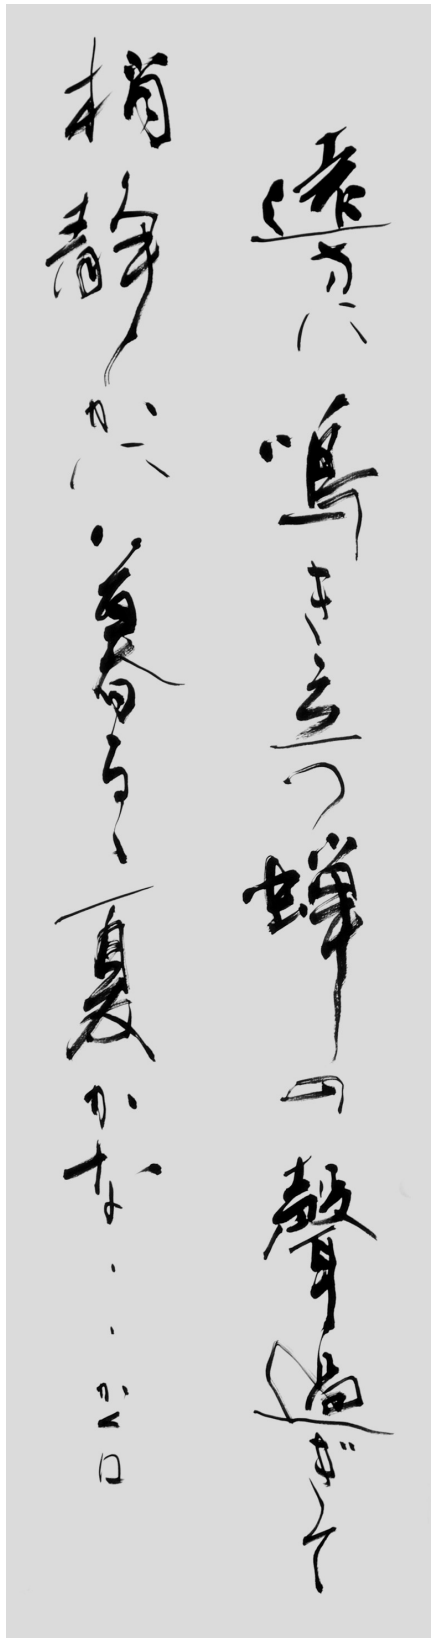 遠方に鳴き立つ蝉の聲過ぎて
梢静かに暮るゝ夏かな・・かくロ